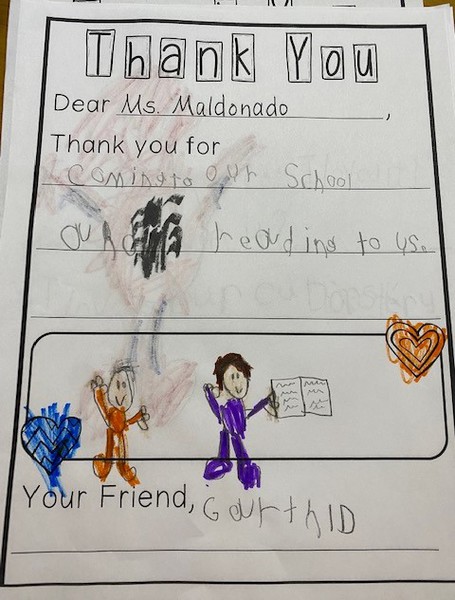 Thank You
Dear Ms. Maldonado,
Thank you for
Coming to our School
and reading to us.
Your Friend, Garth D